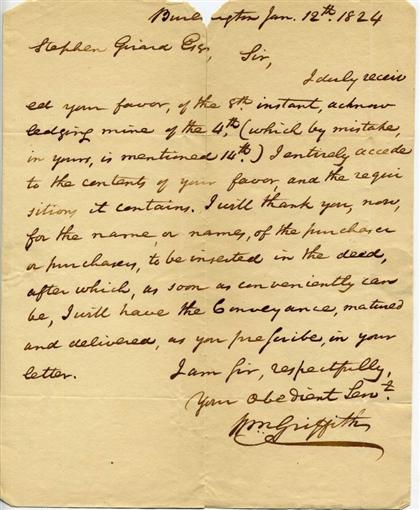 Burlington Jan. 12th. 1824
Stephen Girard Esqr,
Sir,
I duly receiv
ed your favor, of the 8th instant, acknow
ledging mine of the 4th, (which by mistake,
in yours, is mentioned 14th.) I entirely accede
to the contents of your favor, and the requi
sitions it contains. I will thank you, now,
for the name, or names, of the purchaser
or purchasers, to be inserted in the deed,
after which, as soon as conveniently can
be, I will have the Conveyance, matured
and delivered, as you prescribe, in your
letter.
I am Sir, respectfully,
Your Obedient Servt.
Wm Griffith